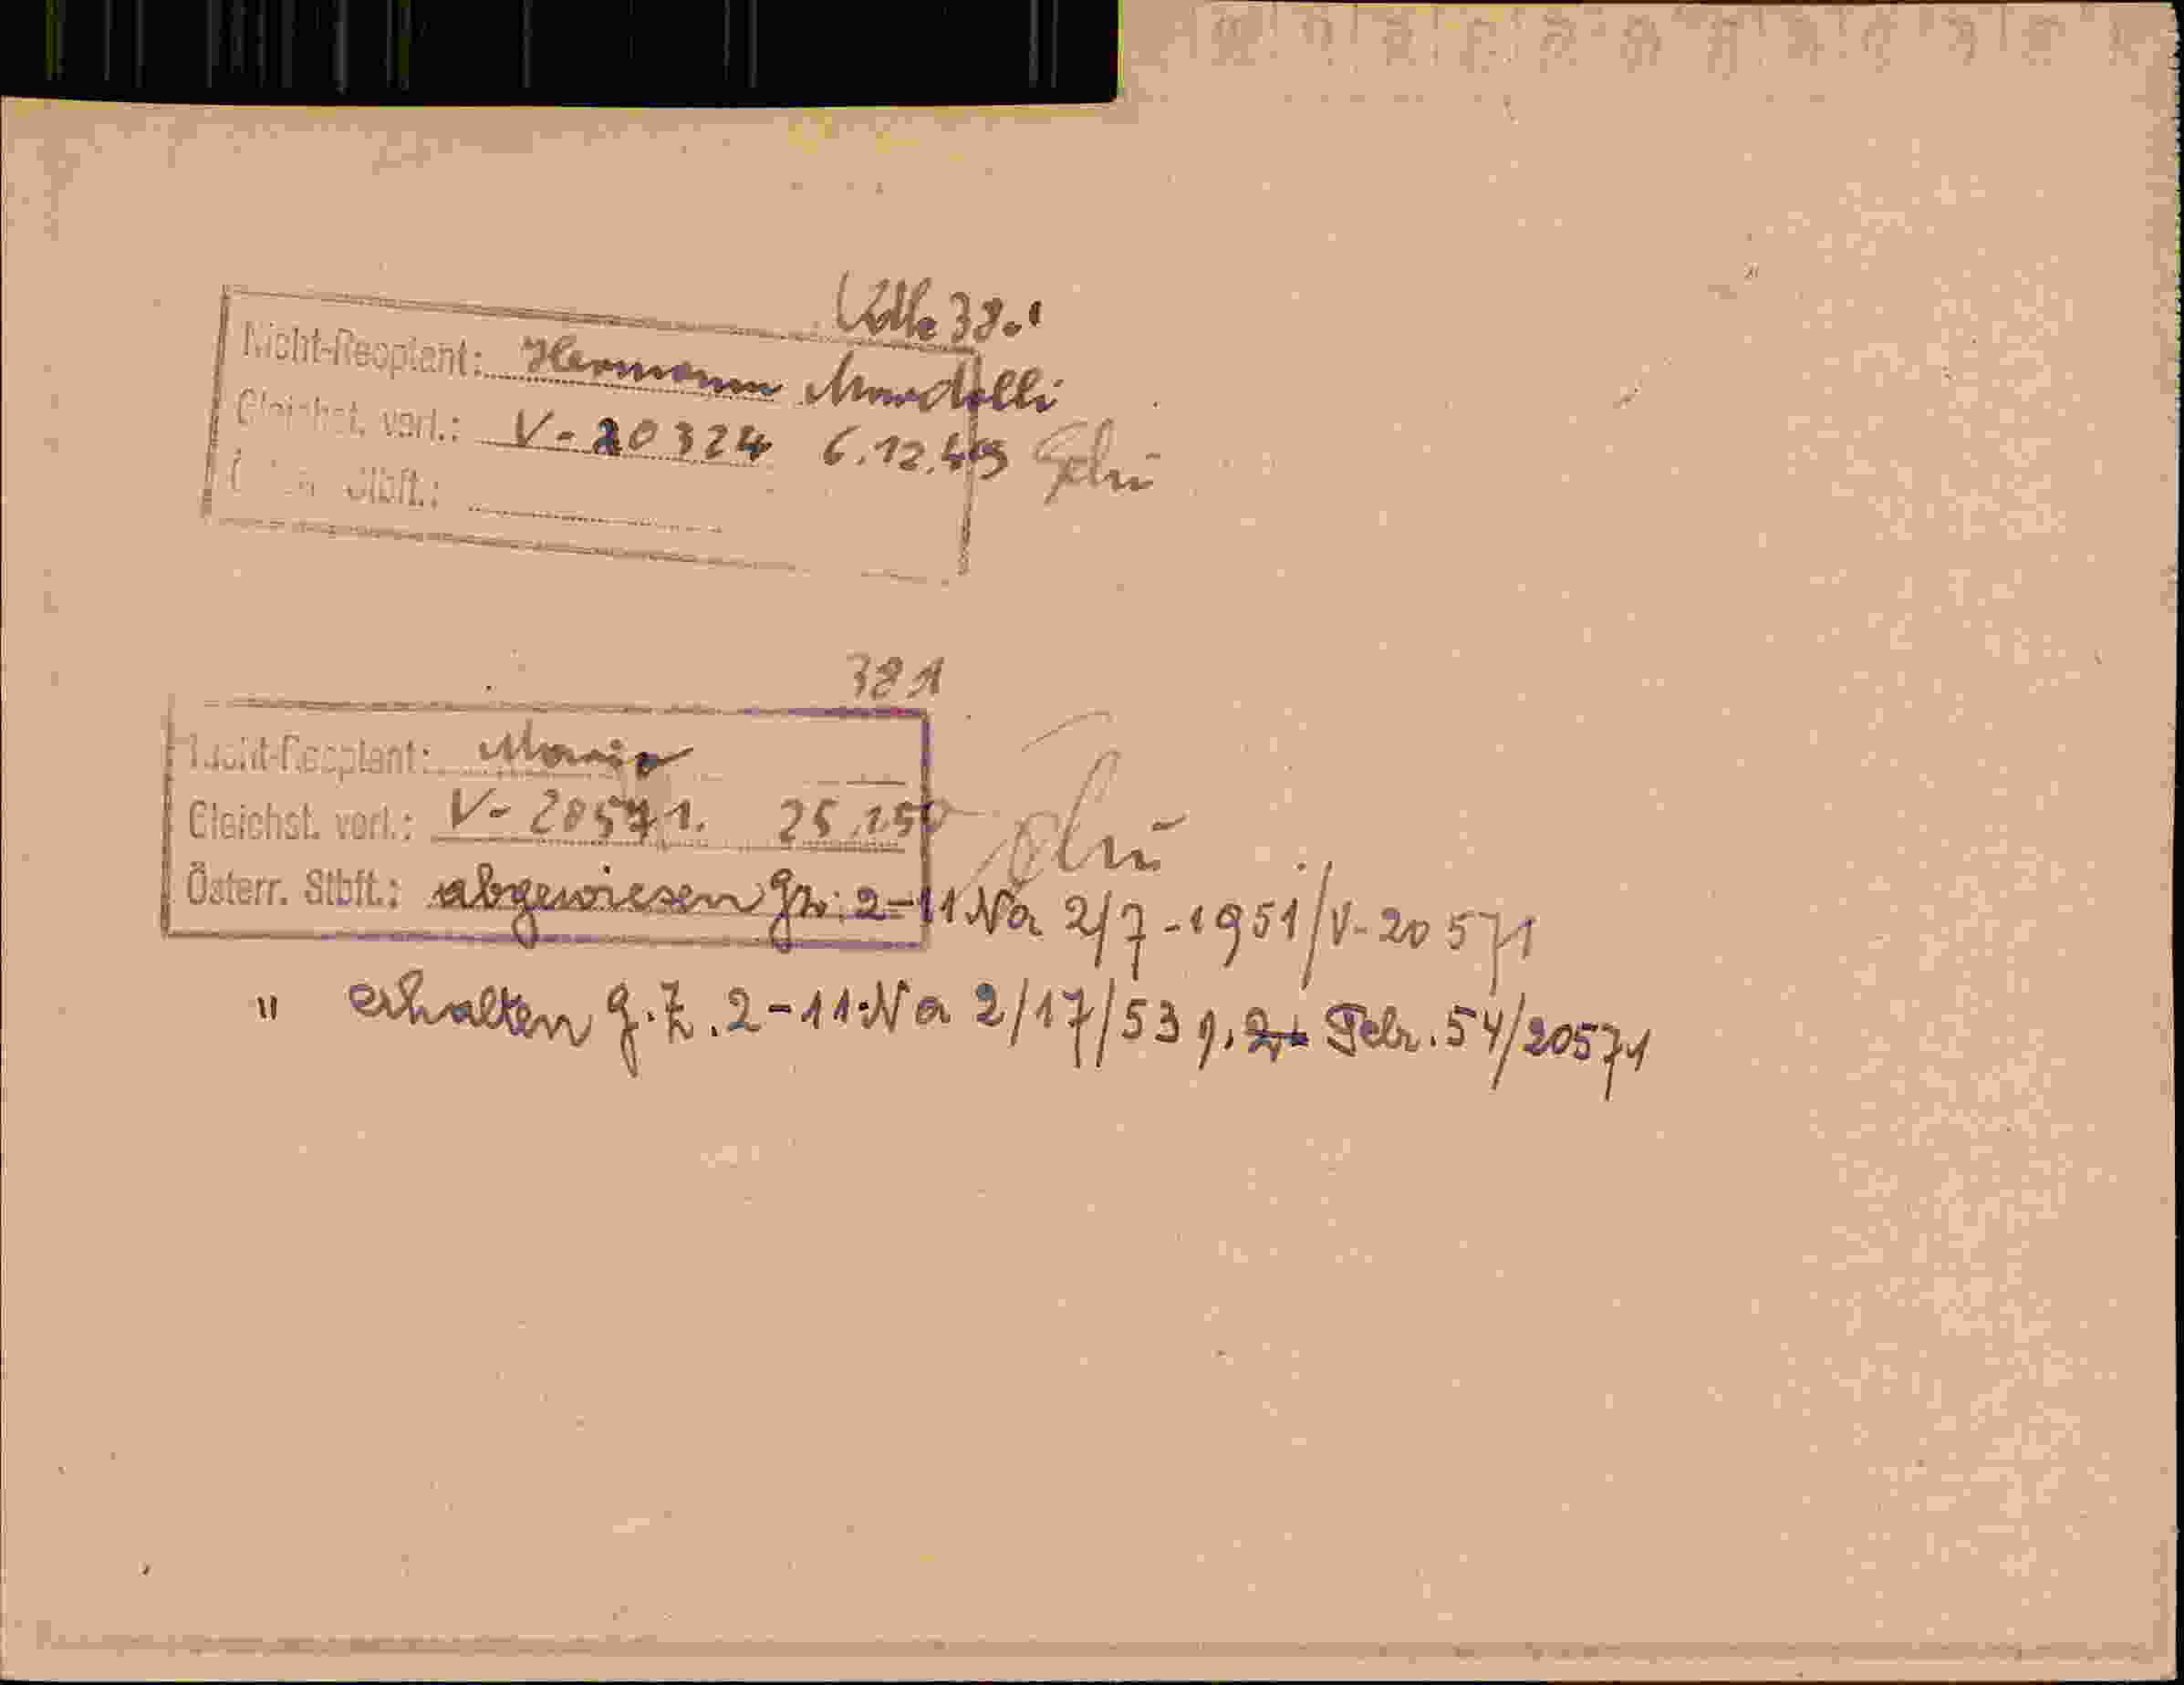 381
Nicht-Reoptant: Hermann
Gleichst. verl.: V-20324 6.12.49 Schü
Stbft.:
381
Nicht-Reoptant: Maria
Gleichst. verl.: V-20571. 25.1.50 Schü
Österr. Stbft.: abgewiesen Gz: 2-11 Na 2/7-1951/V-20571
" erhalten G.Z. 2-11 Na 2/17/53 Febr. 54/20571